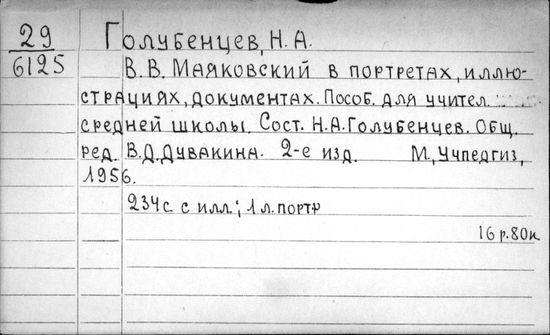 29 Голубенцев, Н. А.
6125 В. В. Маяковский в портретах, иллю-
страциях, документах. Пособ. для учител.
средней школы. Сост. Н. А. Голубенцев. Общ.
ред. В. Д. Дувакина. 2-е изд. М., Учпедгиз,
1956.
234 с. с илл.; 1 л. портр
16 р. 80 к